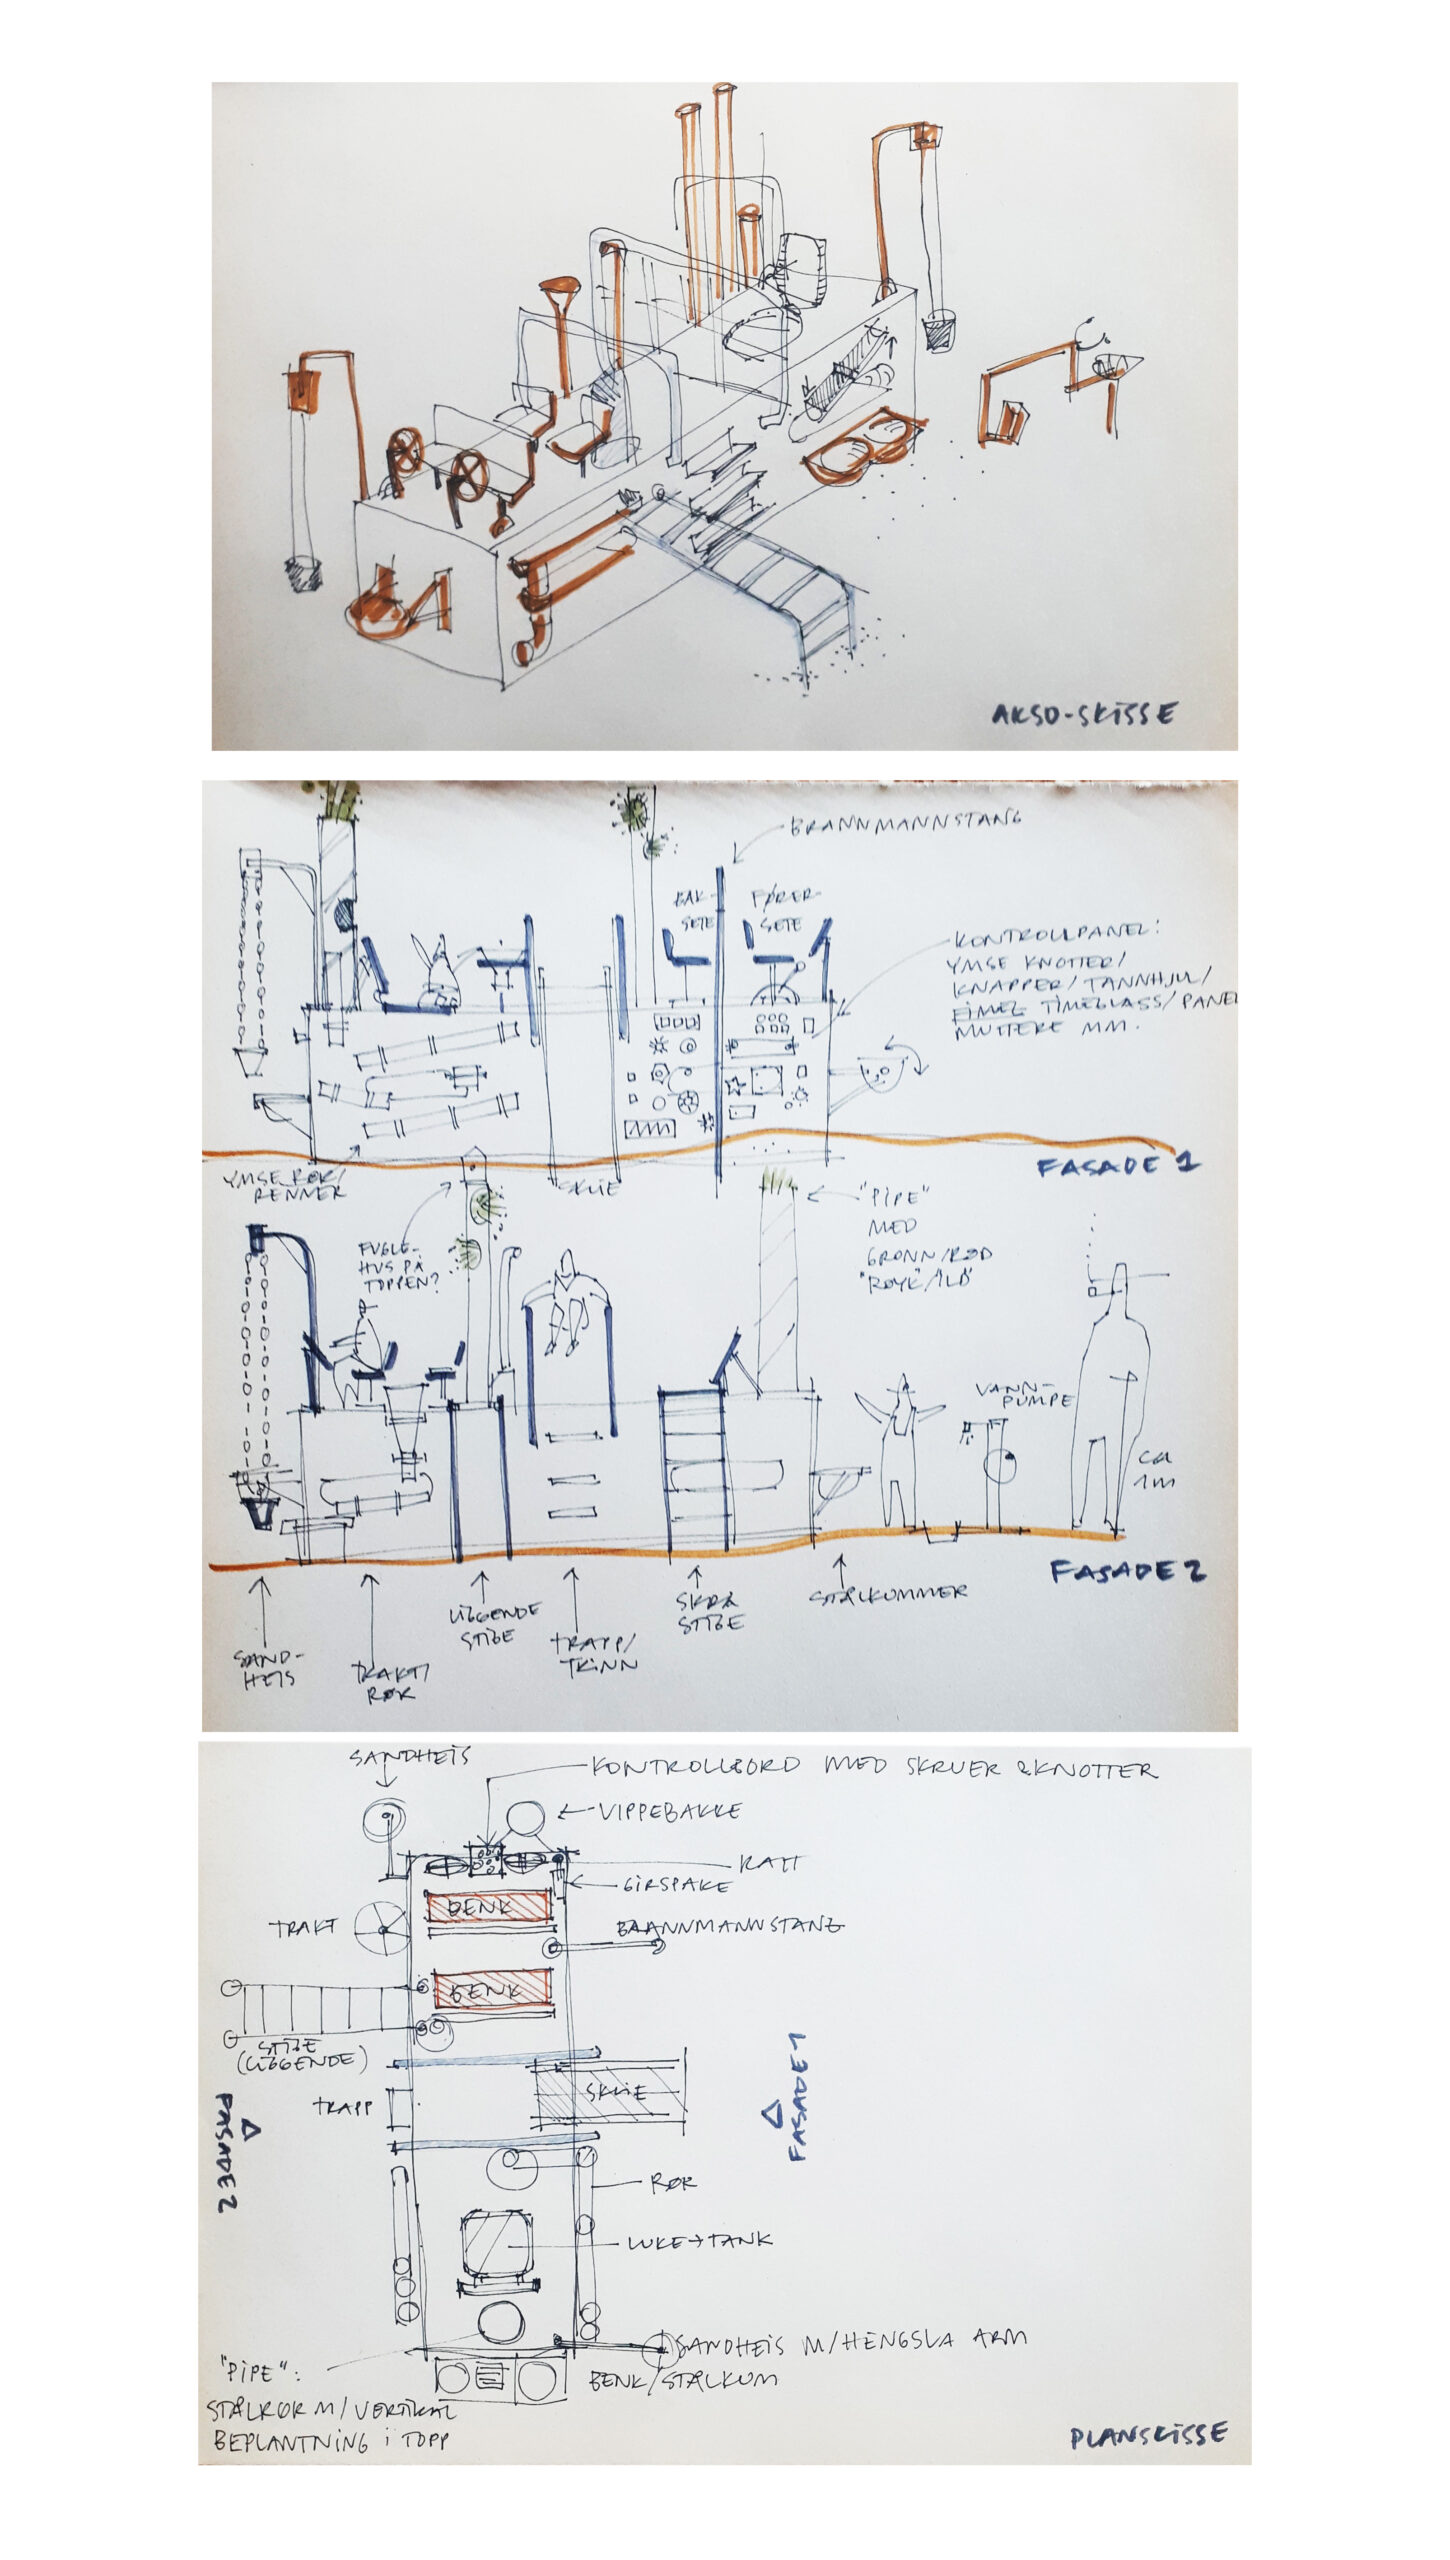 AKSO-SKISSE
BRANNMANNSTANG
BAK-
SETE
FØRER-
SETE
KONTROLLPANEL:
YMSE KNOTTER/
KNAPPER/TANNHJUL/
TIMEGLASS/PANEL
MUTTERE MM.
FASADE 1
YMSE RØR/
RENNER
SKLIE
FUGLE-
HUS PÅ
TOPPEN?
"PIPE"
MED
GRØNN/RØD
"RØYK"/"ILD"
VANN-
PUMPE
ca
1m
FASADE 2
SAND-
HEIS
TRAKT/
RØR
LIGGENDE
STIGE
TRAPP/
TRINN
SKRÅ
STIGE
STÅLKUMMER
SANDHEIS
KONTROLLBORD MED SKRUER & KNOTTER
VIPPEBAKKE
RATT
GIRSPAKE
BENK
TRAKT
BRANNMANNSTANG
BENK
STIGE
(LIGGENDE)
SKLIE
TRAPP
FASADE 1
FASADE 2
RØR
LUKE→TANK
SANDHEIS M/HENGSLA ARM
BENK/STÅLKUM
"PIPE":
STÅLRØR M/VERTIKAL
BEPLANTNING i TOPP
PLANSKISSE